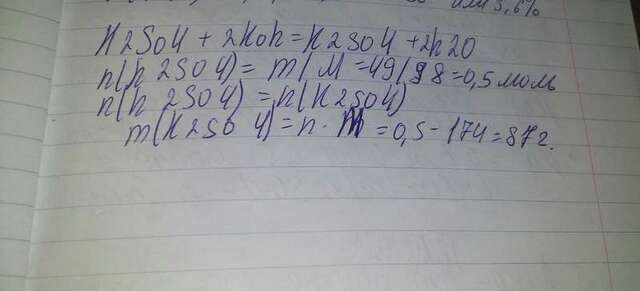 или 3,6%
H2SO4 + 2KOH = K2SO4 + 2h2O
n(h2SO4) = m/M = 49/98 = 0,5 моль
n(h2SO4) = n(K2SO4)
m(K2SO4) = n · M = 0,5 - 174 = 87г.